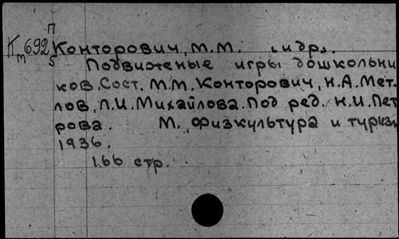 П
Кm692
5
Конторович, М.М. и др.
Подвиженые игры дошкольни
ков. Сост. М.М. Конторович, Н.А. Мет-
лов, Л.И. Михайлова. Под ред. Н.И. Пет
рова. М., Физкультура и туризм
1936.
166 стр.